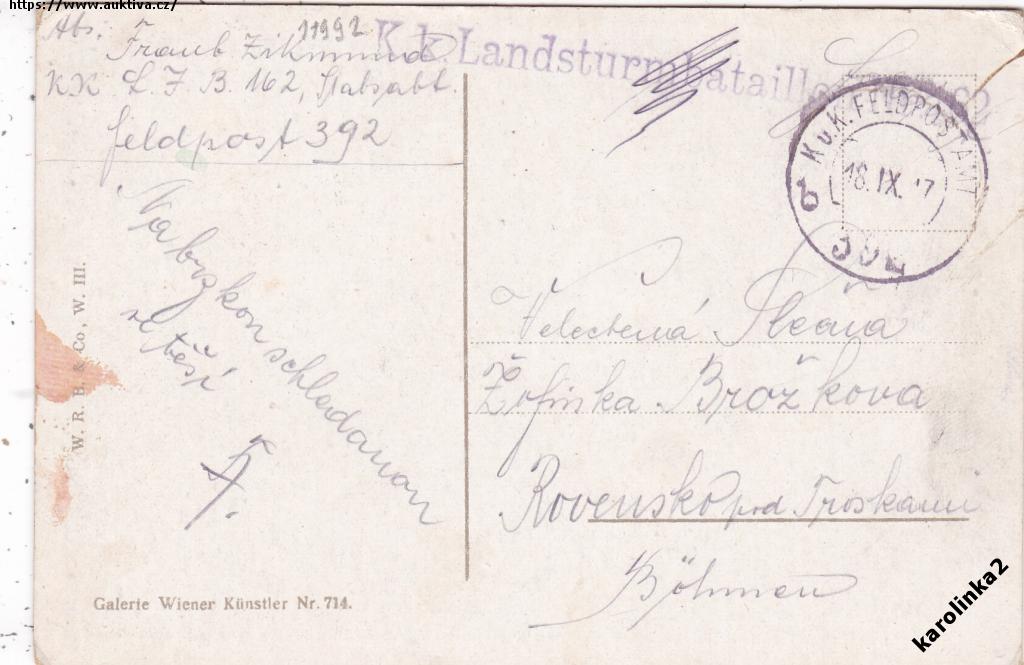 https://www.auktiva.cz/
11992
Abs:
Zikmund
K.K. L. I. B. 162, Stabsabt.
Feldpost 392
K.k. Landsturmbataillon
K.u.K. FELDPOSTAMT
b
18. IX. 17
392
Na brzkou schledanou
se těší
Velectěná Slečna
Žofinka Brožkova
Rovensko pod Troskami
Böhmen
W. R. B. & Co., W. III.
Galerie Wiener Künstler Nr. 714.
karolinka2